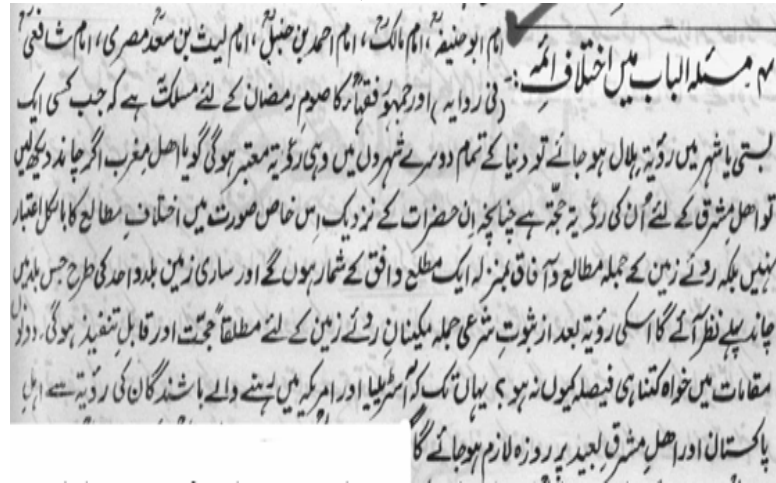 ۴م مسئلہ الباب میں اختلافِ ائمہ :-
امام ابوحنیفہؒ، امام مالکؒ، امام احمد بن حنبلؒ، امام لیث بن سعد مصریؒ، امام شافعیؒ
(فی روایہ) اور جمہور فقہاءؒ کا صومِ رمضان کے لئے مسلک یہ ہے کہ جب کسی ایک
بستی یا شہر میں رؤیۃِ ہلال ہو جائے تو دنیا کے تمام دوسرے شہروں میں وہی رؤیۃ معتبر ہوگی گویا اھل مغرب اگر چاند دیکھ لیں
تو اھلِ مشرق کے لئے اُن کی رؤیۃ حجّۃ ہے چنانچہ اِن حضرات کے نزدیک اِس خاص صورت میں اختلافِ مطالع کا بالکل اعتبار
نہیں بلکہ روئے زمین کے جملہ مطالع و آفاق بمنزلہ ایک مطلع و افق کے شمار ہوں گے اور ساری زمین بلدِ واحد کی طرح جس بلد میں
چاند پہلے نظر آئے گا اسکی رؤیۃ بعد از ثبوتِ شرعی جملہ مکینانِ روئے زمین کے لئے مطلقاً حجّت اور قابلِ تنفیذ ہوگی۔ دونوں
مقامات میں خواہ کتنا ہی فیصلہ کیوں نہ ہو؟ یہاں تک کہ آسٹریلیا اور امریکہ میں بسنے والے باشندگان کی رؤیۃ سے اہلِ
پاکستان اور اھلِ مشرقِ بعید پر روزہ لازم ہو جائے گا